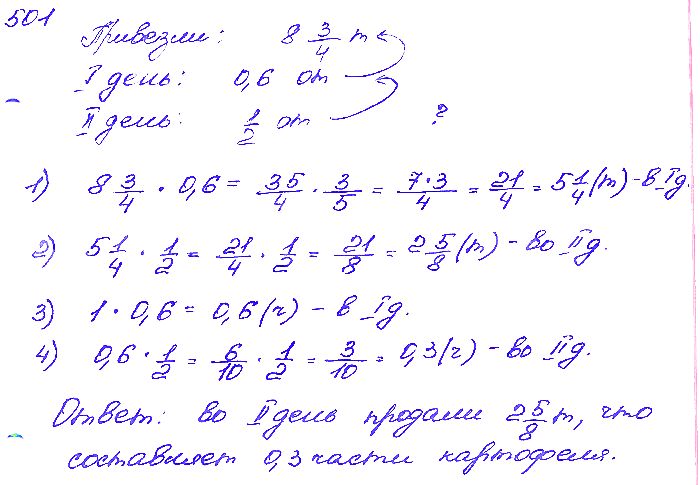 501
Привезли: 8 3/4 т
I день: 0,6 от
II день: 1/2 от ?
1) 8 3/4 · 0,6 = 35/4 · 3/5 = 7·3/4 = 21/4 = 5 1/4 (т) - в I д.
2) 5 1/4 · 1/2 = 21/4 · 1/2 = 21/8 = 2 5/8 (т) - во II д.
3) 1 · 0,6 = 0,6 (ч) - в I д.
4) 0,6 · 1/2 = 6/10 · 1/2 = 3/10 = 0,3 (ч) - во II д.
Ответ: во II день продали 2 5/8 т, что
составляет 0,3 части картофеля.